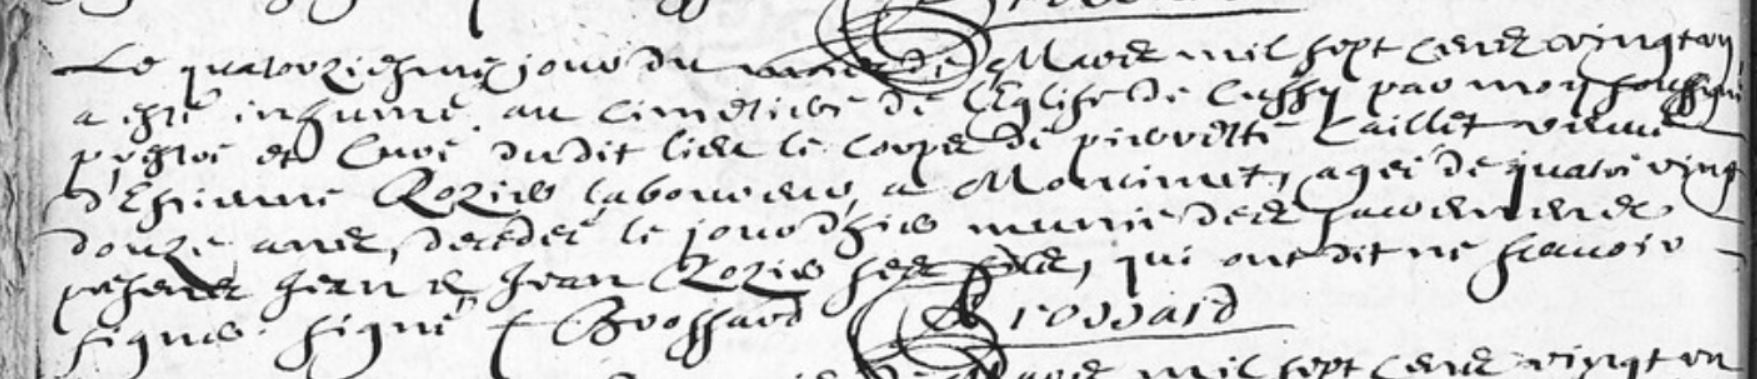 Le quatorziesme jour du mois de Mars mil sept cens vingt un
a esté inhumé au cimetiere de l'Eglise de Cussy par moy soussigné
prestre et Curé dudit lieu le corps de pierrette Caillet veuve
d'Estienne Rozier laboureur, a Montimet, agee de quatre vingt
douze ans, decedeé le jour d'hier munie des sacremens
presens Jean & Jean Rozier ses fils, qui ont dit ne scavoir
signer. signé Brossard Brossard
Mars mil sept cens vingt un